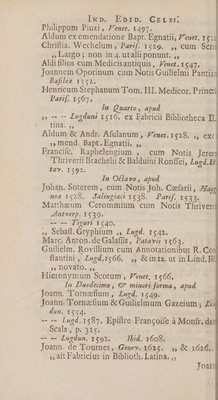 IND. EDID. CELSI.
Philippum Pinzi, Venet. 1497.
Aldum ex emendatione Bapt. Egnatii, Venet. 152
Christia. Wechelum, Paris. 1529. ,, cum
,, Largo; non in 4. ut alii ponunt. ,,
Aldi filios cum Medicis antiquis, Venet. 1547.
Joannem Oporinum cum Notis Guilielmi Pantin
Basilea 1552.
Henricum Stephanum Tom. III. Medicor. Princ
Paris. 1567.
In Quarto, apud
,, -- -- Lugduni 1516. ex Fabricii Bibliotheca
,, tina. ,,
Aldum & Andr. Asulanum, Venet. 1528. ,,
,, mend. Bapt. Egnatii. ,,
Francisc. Raphelengium, cum Notis
Thriverii Brachelii & Balduini Ronssei, Lugd.
tav. 1592.
In Octavo, apud
Johan. Soterem, cum Notis Joh. Cæsarii,
noa 1528. Salingiaci 1538. Paris. 1533.
Matthæum Crommium cum Notis
Antverp. 1539.
-- -- Tiguri 1540.
,, Sebast. Gryphium ,, Lugd. 1542.
Marc. Anton. de Galassis, Patavii 1563.
Guilielm. Rovillium cum Annotationibus R.
stantini, Lugd. 1566. ,, & in 12. ut in Lind.
,, novato. ,,
Hieronymum Scotum, Venet. 1566.
In Duodecimo, & minori forma, apud
Joann. Tornæsium, Lugd. 1549.
Joann. Tornæsium & Guilielmum Gazeium,
dun. 1554.
-- -- Lugd. 1587. Epistre Françoise à Monsr. de
Scala, p. 325.
-- -- Lugdun. 1592. Ibid. 1608.
Joann. de Tournes, Genev. 1625. ,, & 1626.
,, ait Fabricius in Biblioth. Latina. ,,